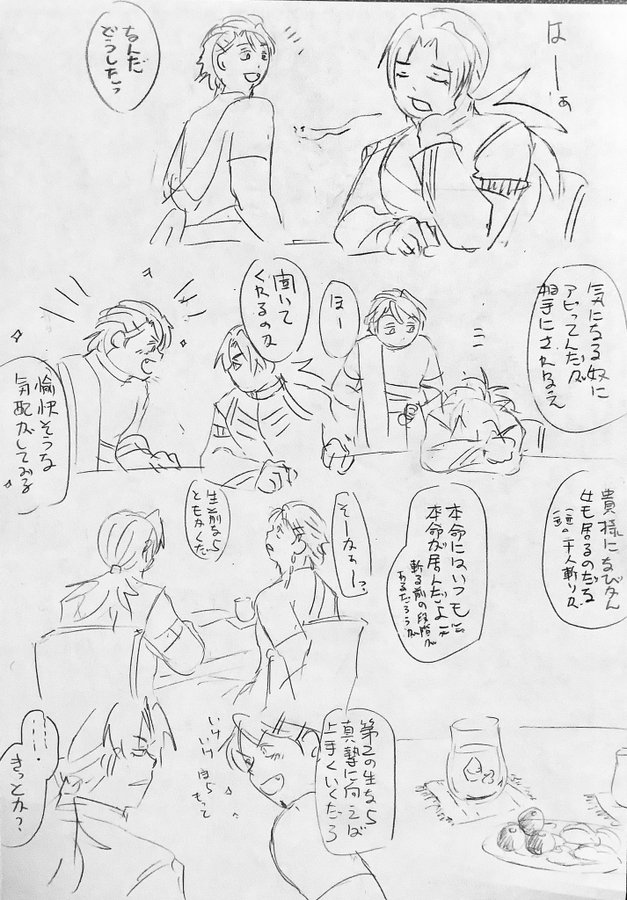 はーぁ
なんだ
どうした?
気になる奴に
アピってんだが
相手にされねえ
ほー
聞いて
くれるのか
愉快そうな
気配がしてみる
貴様になびかん
女も居るのだな
千人斬りが
本命にはいつも
本命が居んだよ
斬る前の段階が
あるだろうが
そーかぁー?
生前なら
ともかくだ
第2の生なら
真摯に向えば
上手くいくだろ
いけ
いけ
ほら
もって
……
きっとか?